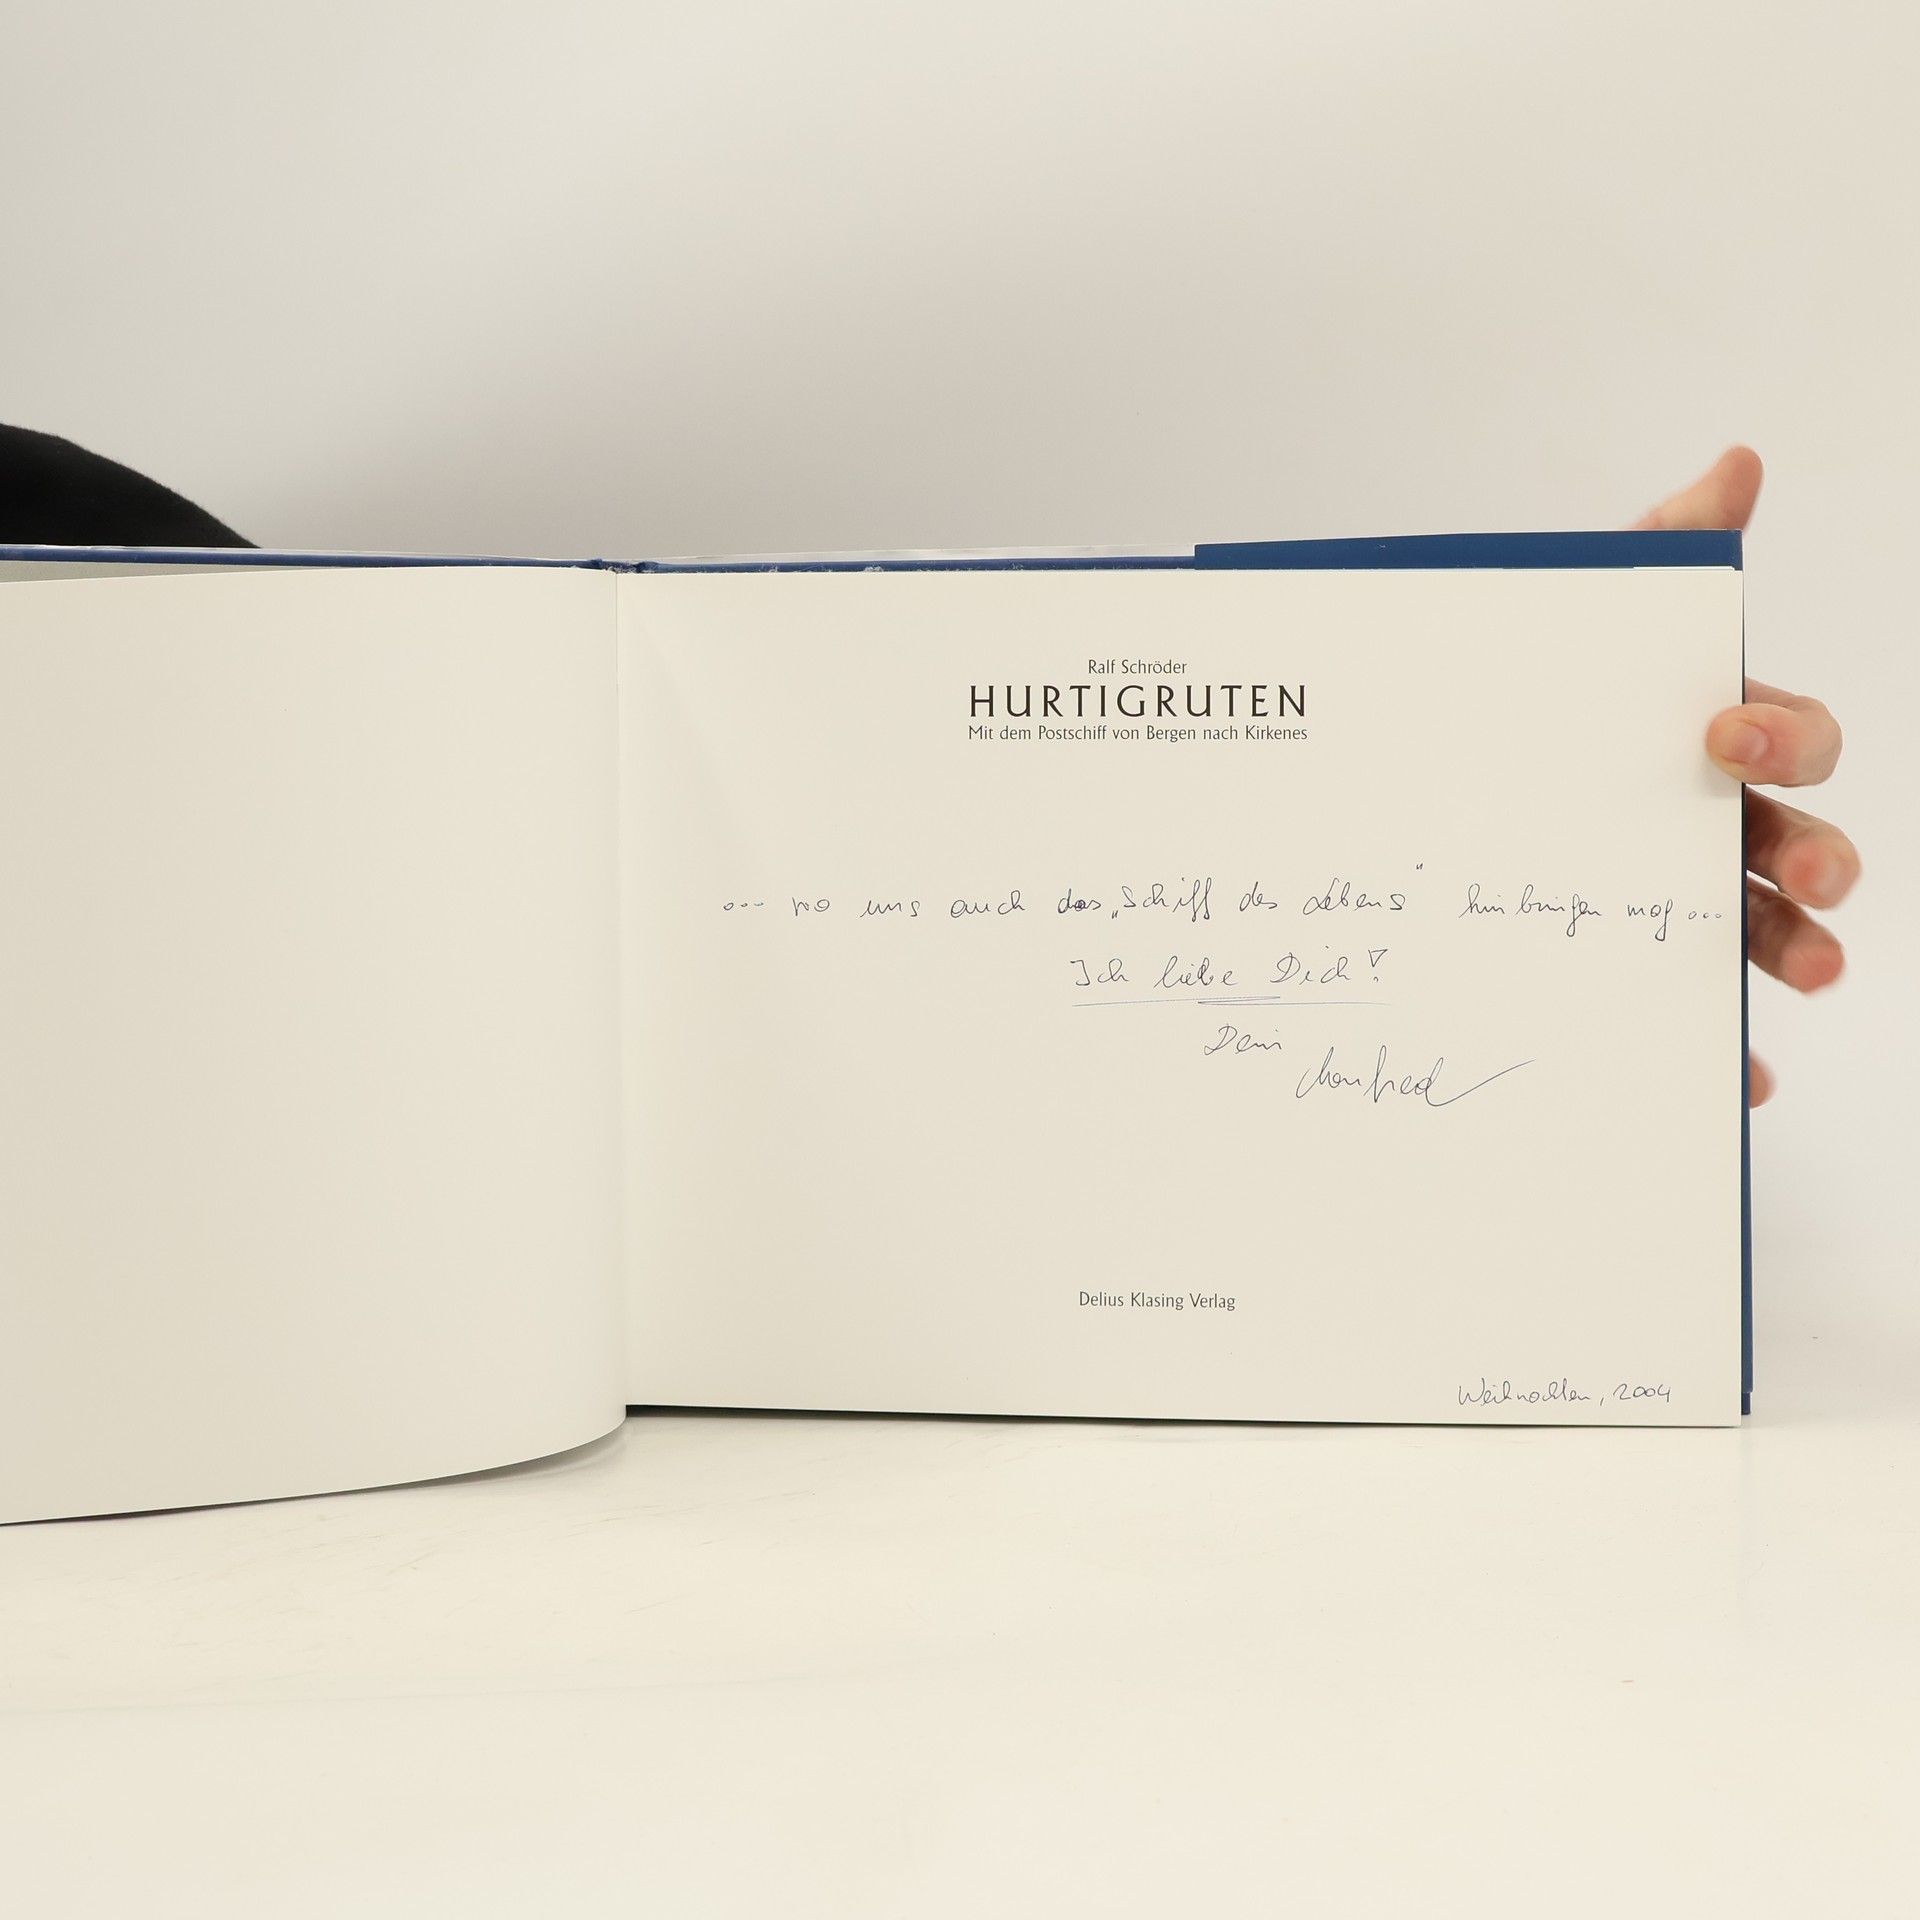 Ralf Schröder
HURTIGRUTEN
Mit dem Postschiff von Bergen nach Kirkenes
... wo uns auch das „Schiff des Lebens" hinbringen mag ...
Ich liebe Dich!
Dein
Manfred
Delius Klasing Verlag
Weihnachten, 2004